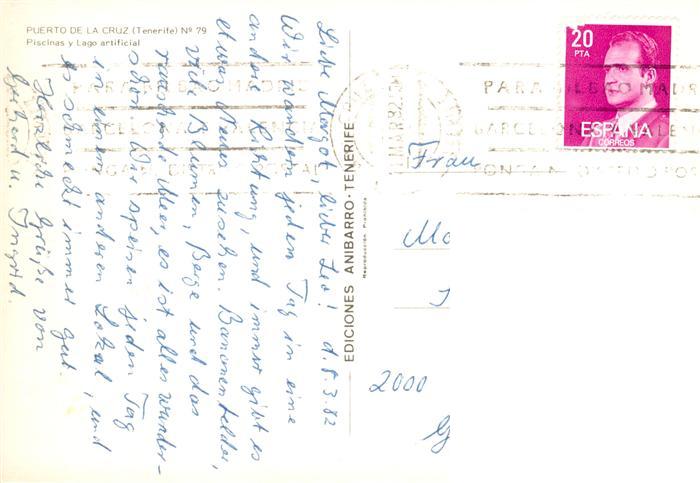 PUERTO DE LA CRUZ (Tenerife) Nº 79
Piscinas y Lago artificial
Liebe Margot, lieber Leo! d. 8.3.82
Wir wandern jeden Tag in eine
andere Richtung, und immer gibt es
etwas Neues zu sehen. Bananenfelder,
viele Blumen, Berge und das
rauschende Meer, es ist alles wunder-
schön. Wir speisen jeden Tag
in einem anderen Lokal, und
es schmeckt immer gut.
Herzliche Grüße von
Gerhard u. Ingrid.
EDICIONES ANIBARRO-TENERIFE
Reproducción Prohibida
20
PTA
ESPAÑA
CORREOS
PARA BILBAO MADRI
BARCELON VALEN
PONGAN DTO POS
Frau
2000